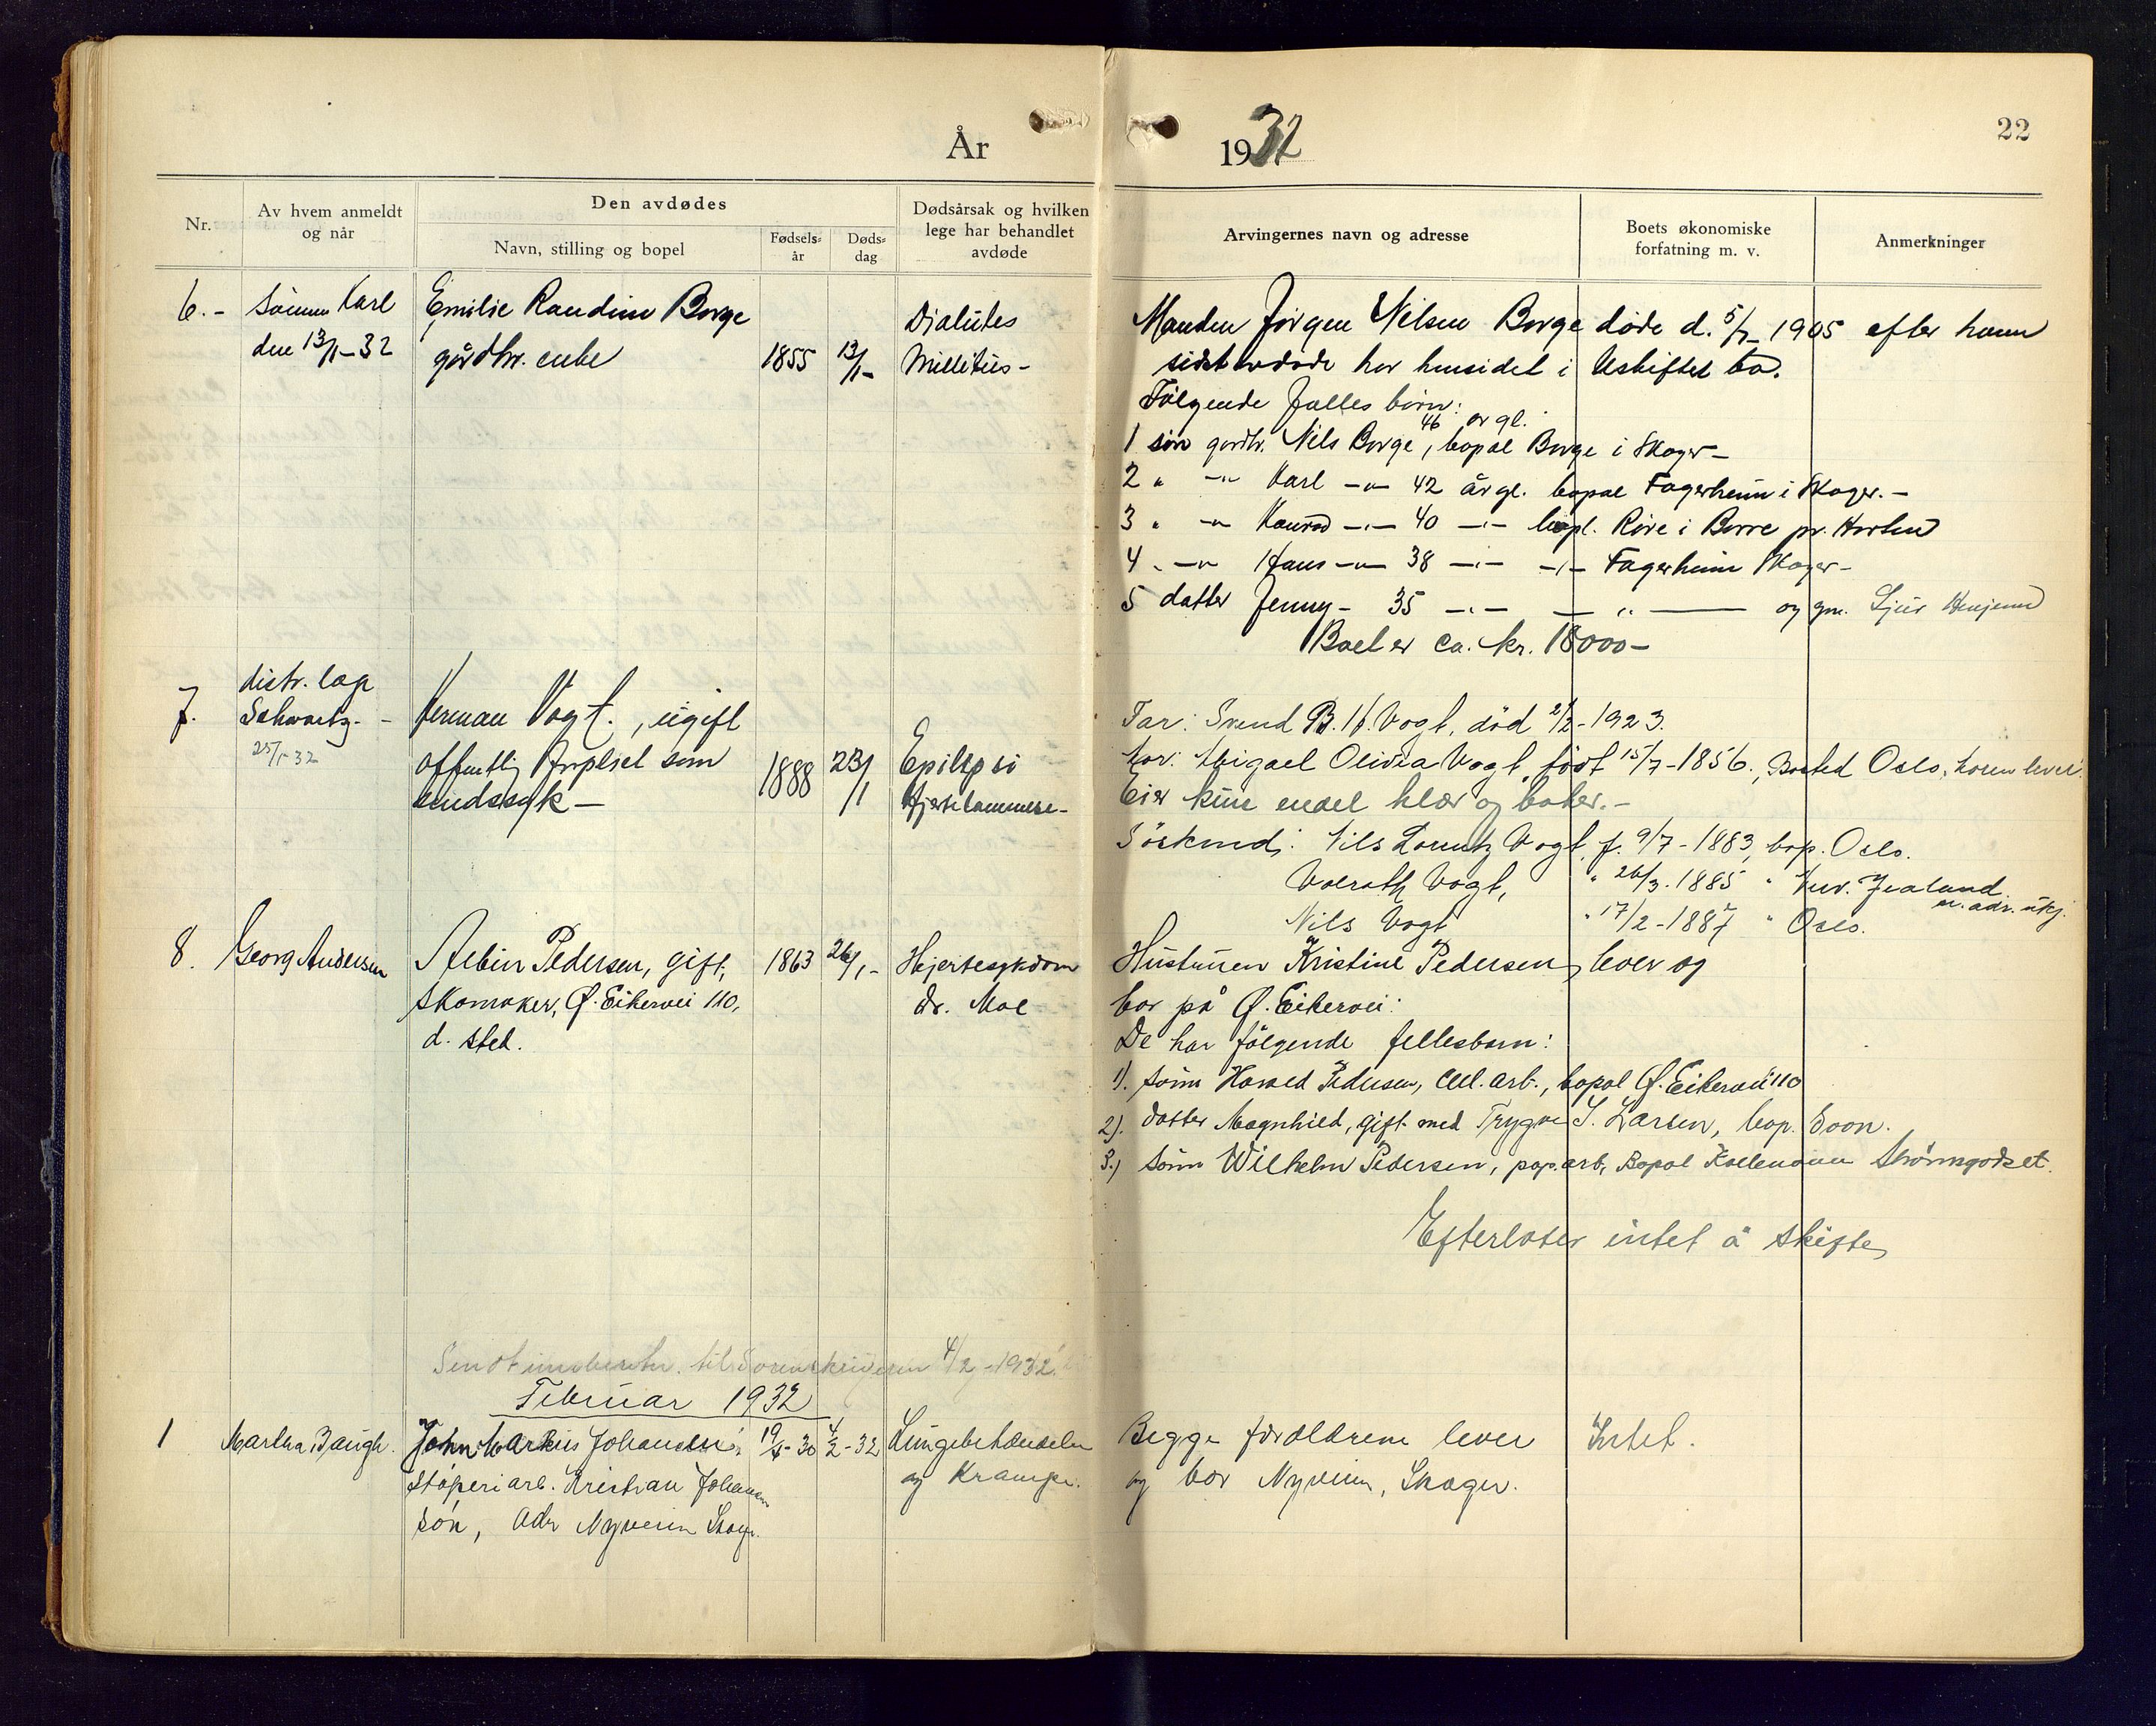 År 1932
22
Nr.
Av hvem anmeldt og når
Den avdødes
Navn, stilling og bopel
Fødsels-år
Døds-dag
Dødsårsak og hvilken lege har behandlet avdøde
Arvingernes navn og adresse
Boets økonomiske forfatning m. v.
Anmerkninger
6.- Sønnen Karl
den 13/1-32
Emilie Randine Borge
gårdbr. enke
1855 13/1-
Diabites
Millitus-
Manden Jørgen Nilsen Borge døde d. 5/7-1905 efter ham
sidst avdøde har hensidet i Uskiftet bo.
Følgende Fælles børn:
1 søn gårdbr. Nils Borge, 46 år gl. bopæl Borge i Skoger-
2 " -"- Karl -"- 42 år gl. bopæl Fagerheim i Skoger.-
3 " -"- Konrad -"- 40 -"- bopl. Røre i Borre pr. Horten
4 " -"- Hans -"- 38 -"- -"- Fagerheim Skoger-
5 datter Jenny- 35 -"- — " — og gm. Sjur
Boet er ca. kr. 18000-
7. distr. læge
Schwartz.-
25/1-32
Herman Vogt., ugift
offentlig forpleiet som
sindssyk-
1888 23/1
Epilepsi
Hjertelammelse-
Far: Svend B. H. Vogt, död 2/2-1923.
Mor: Abigael Olivia Vogt, født 15/7-1856., Bosted Oslo, moren lever.
Eier kun endel klær og bøker.-
Söskend: Nils Lorentz Vogt, f. 9/7-1883, bop. Oslo.
Volrath Vogt, " 26/3.1885 " New. Zealand n. adr. ukj.
Nils Vogt " 17/2-1887 " Oslo.
8. Georg Andersen
Albin Pedersen, gift,
Skomaker, Ø. Eikervei 110,
d. sted.
1863 26/1-
Hjertesykdom
dr. Moe
Hustruen Kristine Pedersen, lever og
bor på Ø. Eikervei:
De har følgende fellesbarn:
1). sønn Harald Pedersen, cell. arb., bopæl Ø. Eikervei 110
2). datter Magnhild, gift med Trygve S. Larsen, bop. Soon.
3.) sønn Wilhelm Pedersen, pap.arb, Bopæl Strømsgodset.
Efterlater intet å skifte,
Sendt innberetn. til Sorenskriveren 4/2-1932.
Februar 1932
1 Martha Baugh.
John Markus Johansen,
Støperiarb. Kristian Johansens
søn, Adr Nyveien Skoger.
19/4-30 4/2-32
Lungebetændelse
og Krampe.
Begge forældrene lever
og bor Nyveien, Skoger.
Intet.